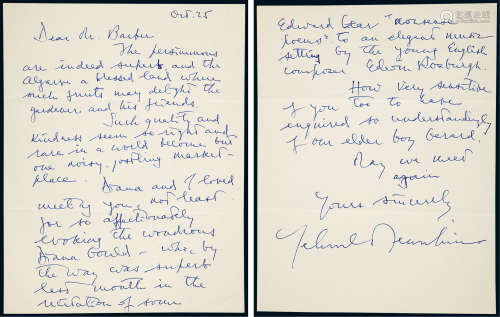 Oct. 25
Dear Mr. Barber
The persimmons
are indeed superb and the
Algarve a blessed land where
such fruits may delight the
gardener and his friends.
Such quality and
kindness seem so right and
rare in a world become but
one noisy, jostling market-
place. Diana and I loved
meeting you, not least
for so affectionately
evoking the wondrous
Diana Gould - who, by
the way was superb
last month in the
recitation of some
Edward Lear "nonsense
poems" to an elegant music
setting by the young English
composer Edwin Roxburgh.
How very sensitive
of you too to have
enquired so understandingly
of our elder boy Gerard!
May we meet
again
Yours sincerely
Yehudi Menuhin